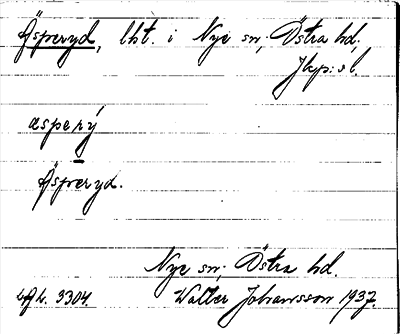 Äsperyd, lht. i Nye sn; Östra hd.
Jkp:s l.
æsperý
Äsperyd.
Nye sn; Östra hd.
3304. Walter Johansson 1937.